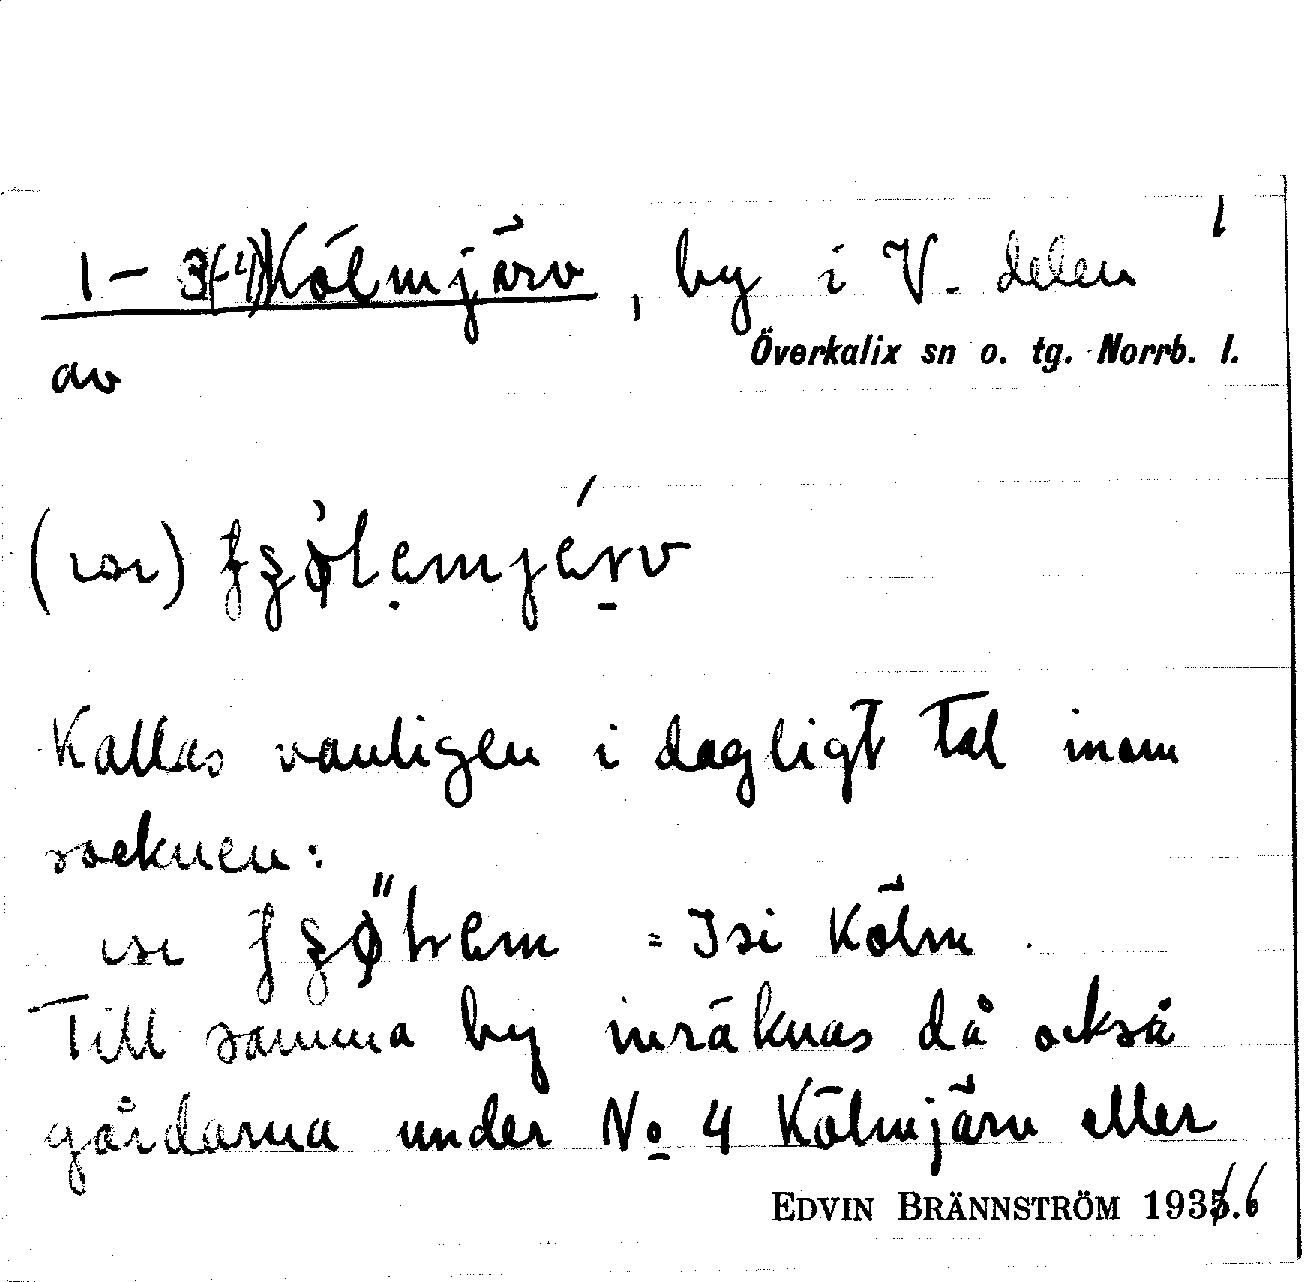 1
1 – 3(-4) Kölmjärv, by i V. delen
av Överkalix sn o. tg. Norrb. l.
Kallas vanligen i dagligt tal inom
socknen:
= Isi Kölm.
Till samma by inräknas då också
gårdarna under No 4 Kölmjärv eller
EDVIN BRÄNNSTRÖM 1935.6